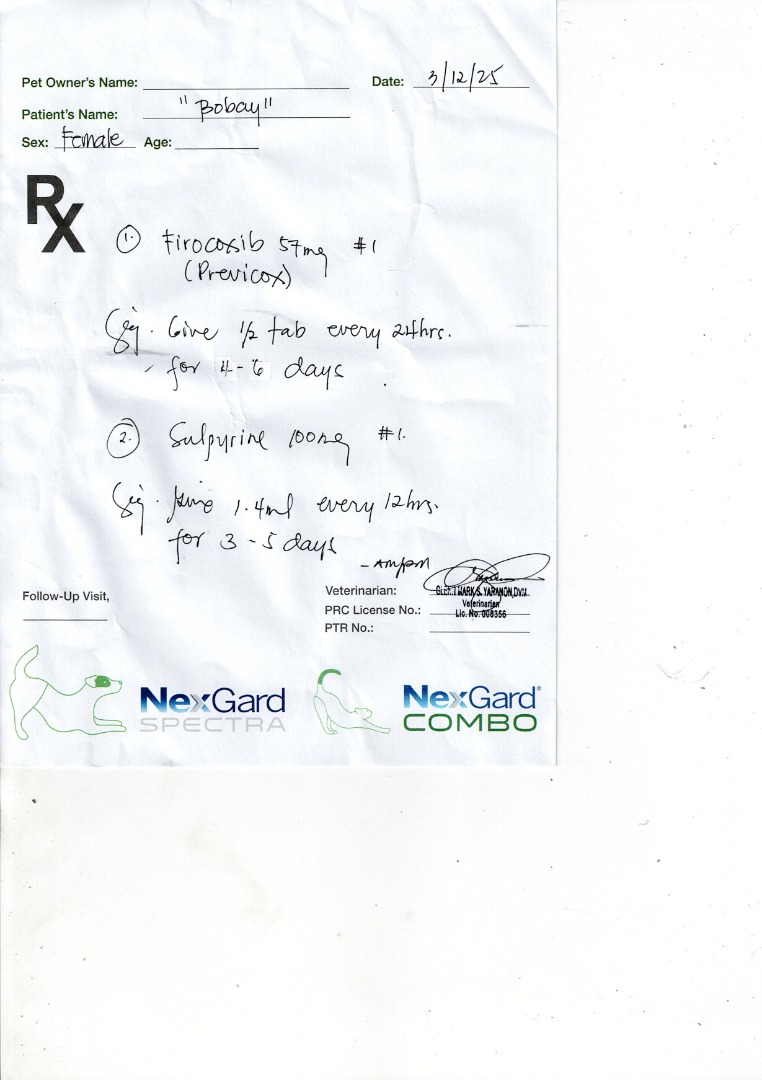 Pet Owner's Name: Date: 3/12/25
Patient's Name: "Bobay"
Sex: Female Age:
Rx
1. Firocoxib 57mg #1
(Previcox)
Sig. Give 1/2 tab every 24hrs.
for 4-6 days
2. Sulpyrine 100mg #1.
Sig. Give 1.4ml every 12hrs.
for 3-5 days
- AM/PM
Follow-Up Visit,
Veterinarian: MARK S. YAPANON, DVM
Veterinarian
PRC License No.: Lic. No. 008356
PTR No.:
NexGard SPECTRA
NexGard® COMBO